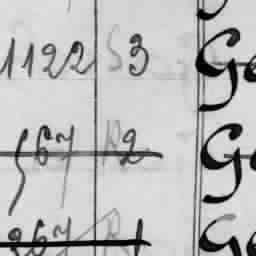 1122 S3 Ge
567 R2 Ge
367 R1 Ge